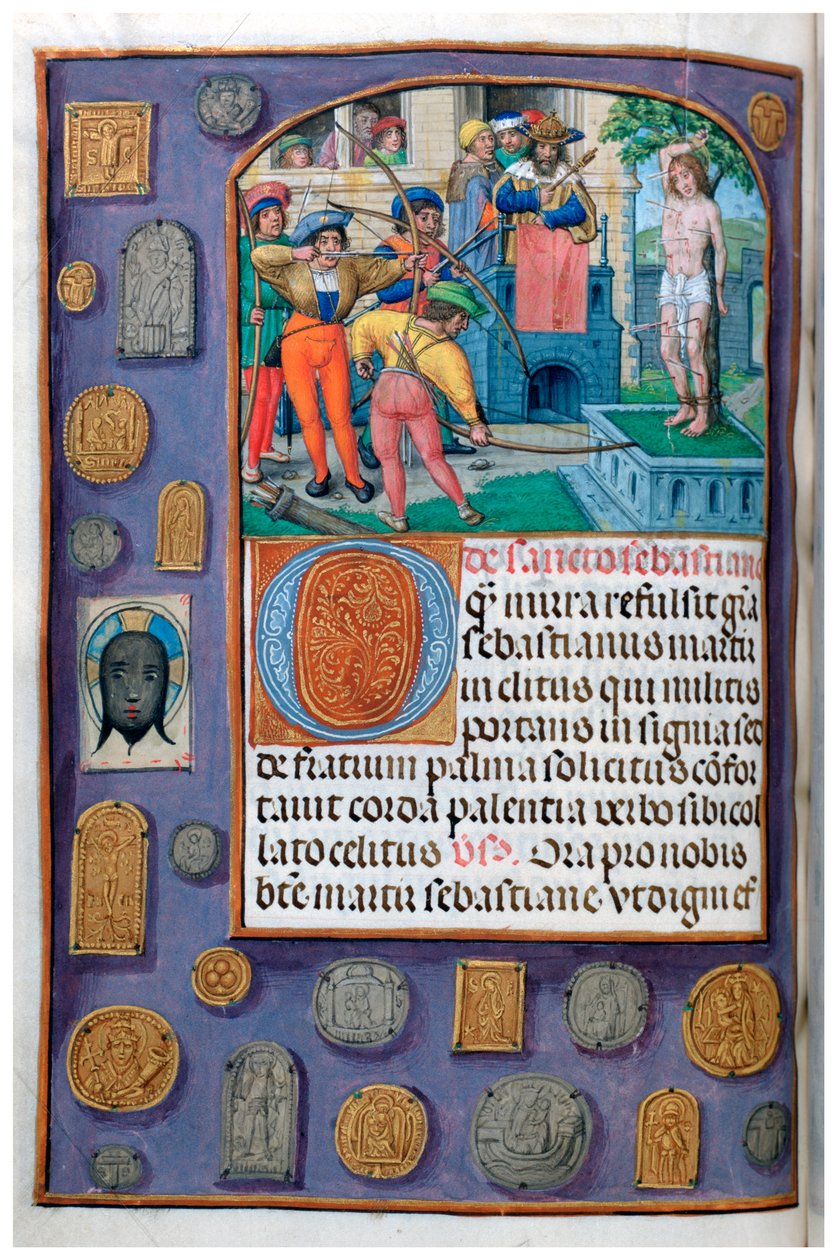 de sancto sebastiano
Q̃ mira refulsit grã
sebastianus martir
in clitus qui militis
portans in signia sed
de fratrum palma solicitus cõfor
tauit corda palentia verbo sibi col
lato celitus v̄s. Ora pro nobis
bt̃e martir sebastiane vt digni ef